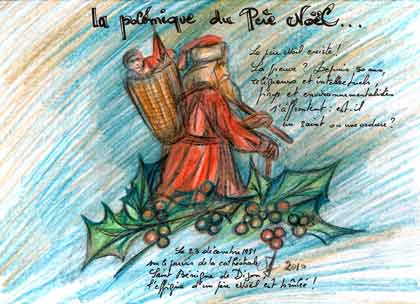 La polémique du Père Noël...
Le père Noël existe !
La preuve ? Depuis 50 ans,
religieux et intellectuels,
et environnementalistes
s'affrontent : est-il
un saint ou une ordure ?
Le 23 décembre 1951
sur le parvis de la cathédrale
Saint Bénigne de Dijon
l'effigie d'un père Noël est brûlée !
2010